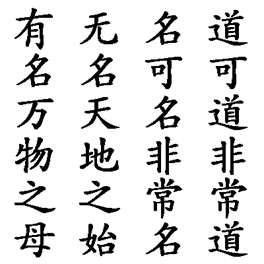 道可道非常道
名可名非常名
无名天地之始
有名万物之母